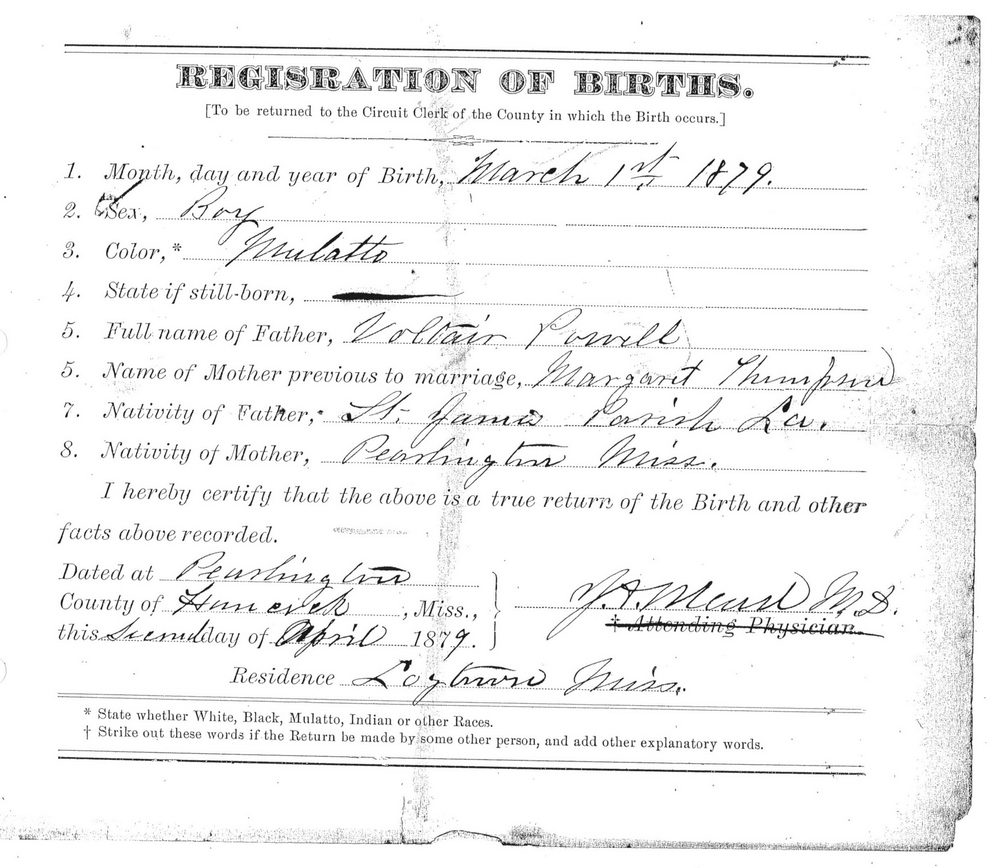 REGISRATION OF BIRTHS.
[To be returned to the Circuit Clerk of the County in which the Birth occurs.]
1. Month, day and year of Birth, March 1st 1879.
2. Sex, Boy
3. Color,* Mulatto
4. State if still-born,
5. Full name of Father, Voltair Powell
5. Name of Mother previous to marriage, Margaret Thompson
7. Nativity of Father, St. James Parish La.
8. Nativity of Mother, Pearlington Miss.
I hereby certify that the above is a true return of the Birth and other
facts above recorded.
Dated at Pearlington
County of Hancock, Miss.,
J. A. Mead M.D.
† Attending Physician.
this Second day of April 1879.
Residence Logtown Miss.
* State whether White, Black, Mulatto, Indian or other Races.
† Strike out these words if the Return be made by some other person, and add other explanatory words.